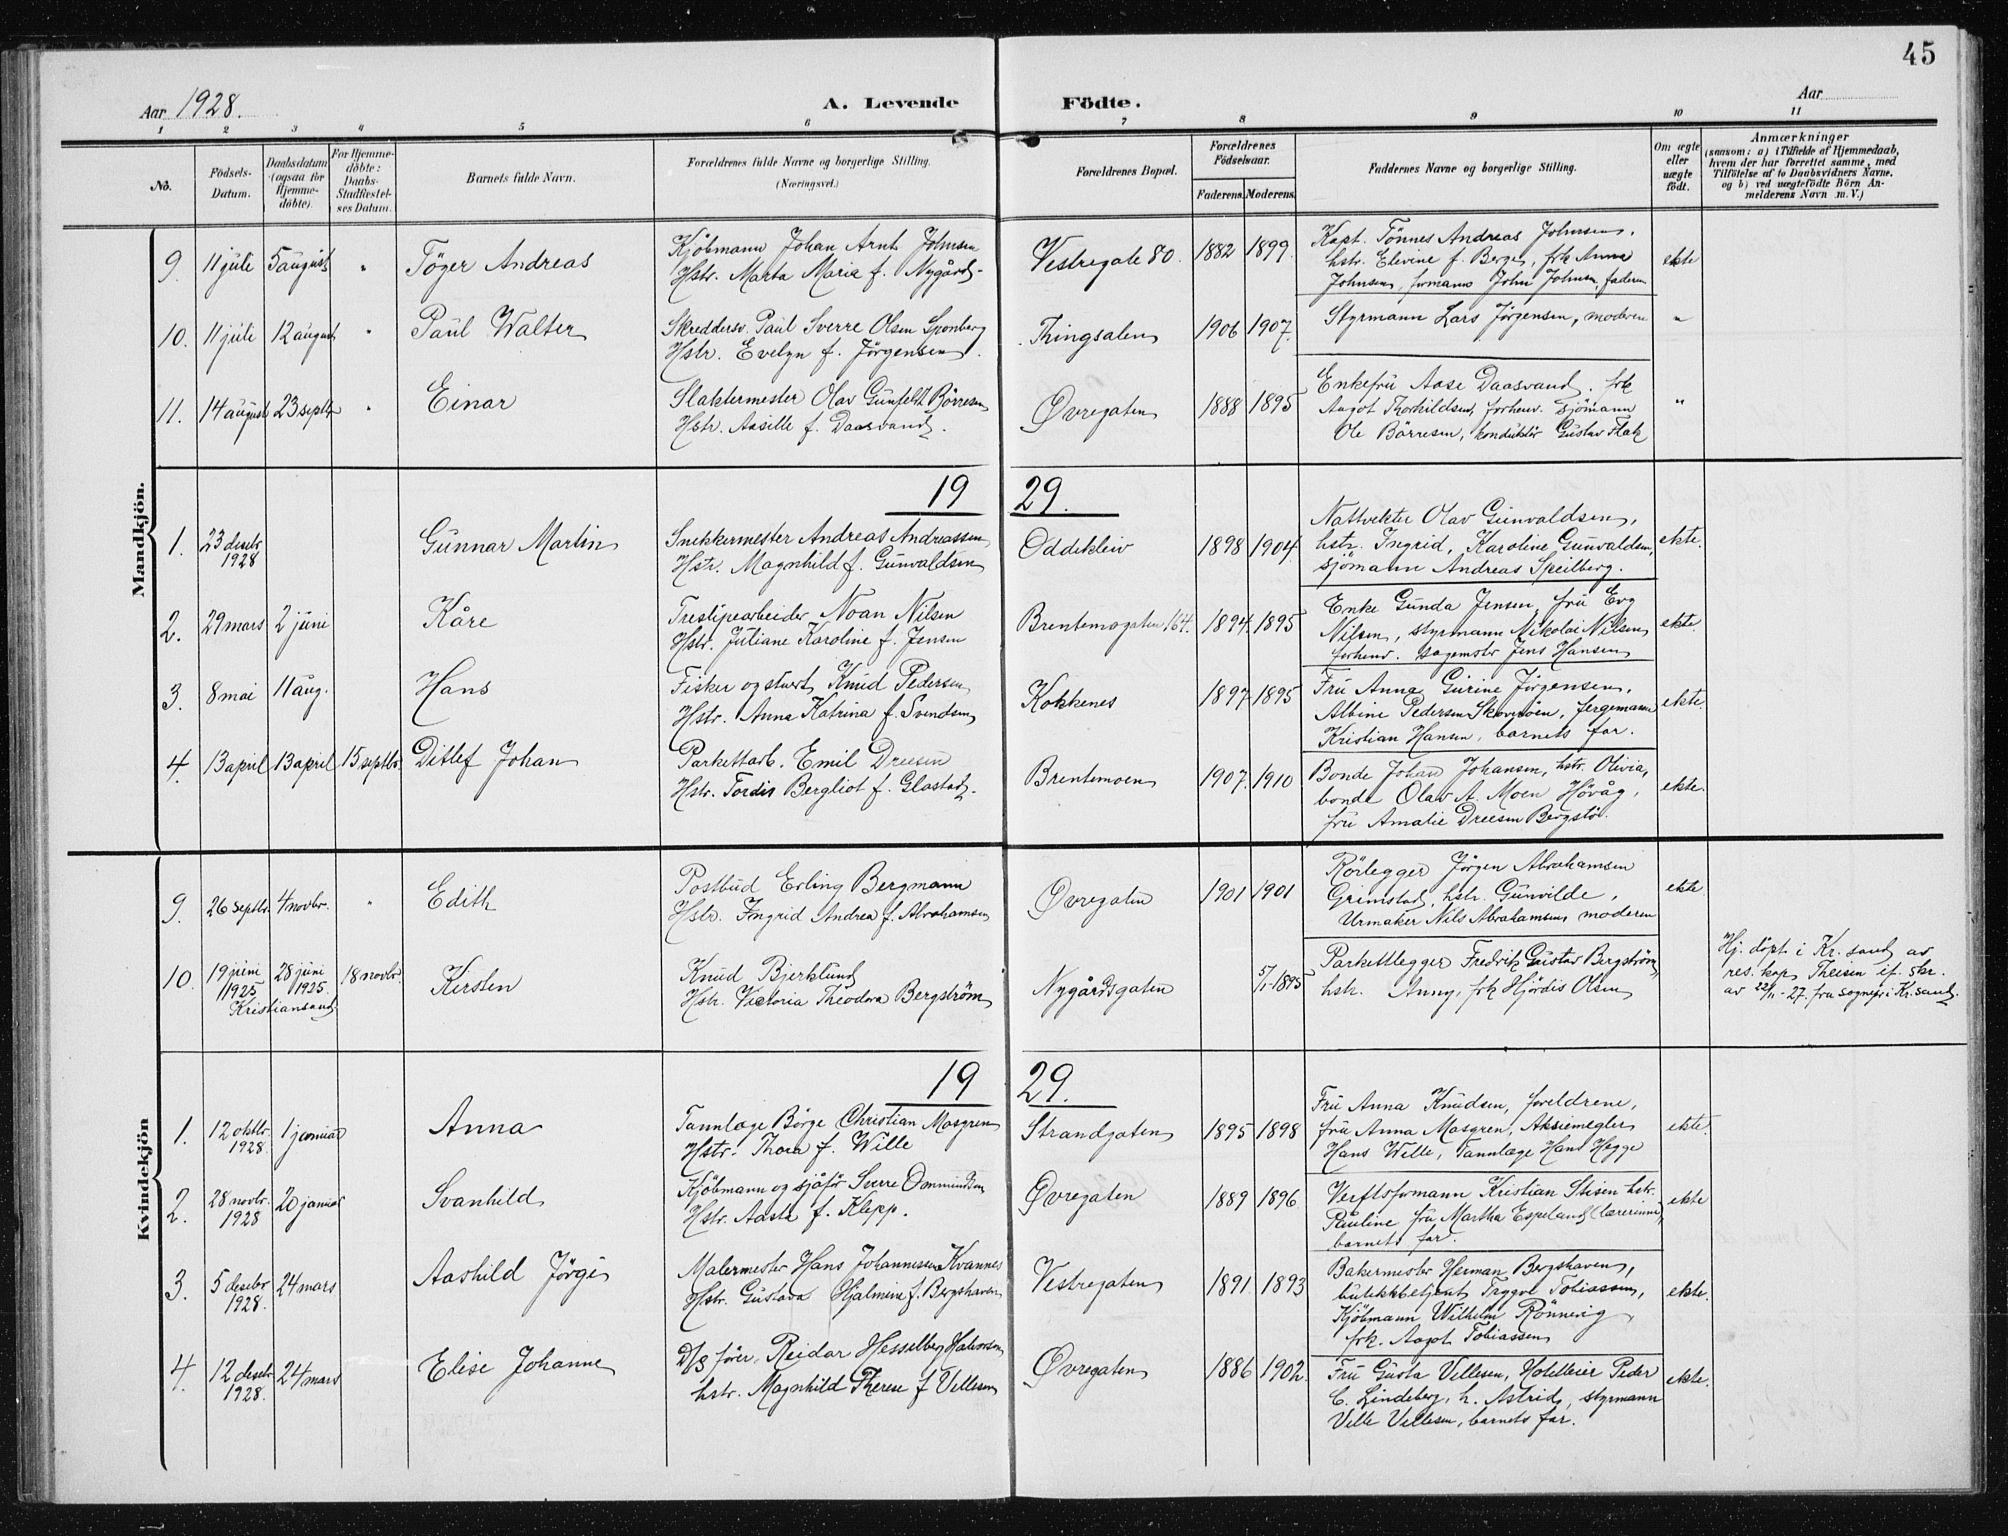 45
Aar 1928.
A. Levende Födte.
Aar
1 2 3 4 5 6 7 8 9 10 11
No.
Födsels-Datum.
Daabsdatum (ogsaa for Hjemme-döbte).
For Hjemme-döbte: Daabs-Stadfæstel-ses Datum.
Barnets fulde Navn.
Forældrenes fulde Navne og borgerlige Stilling. (Næringsvei.)
Forældrenes Bopæl.
Forældrenes Födselsaar.
Faderens. Moderens.
Faddernes Navne og borgerlige Stilling.
Om ægte eller uægte födt.
Anmærkninger
(saasom: a) i Tilfælde af Hjemmedaab, hvem der har forrettet samme, med Tilföielse af to Daabsvidners Navne, og b) ved uægtefödte Börn An-melderens Navn m. V.)
Mandkjön.
9. 11 juli 5 august " Töger Andreas
Kjöbmann Johan Arnt Johnsen
Hstr. Marta Maria f. Nygård.
Vestregate 80. 1882 1899
Kapt. Tönnes Andreas Johnsen,
hstr. Elevine f. Berge, frk Anna
Johnsen, formann John Johnsen, faderen
ekte
10. 11 juli 12 august " Paul Walter
Skreddersv. Paul Sverre Olsen Sponberg
Hstr. Evelyn f. Jörgensen.
Tingsalen 1906 1907.
Styrmann Lars Jörgensen, moderen
"
11. 14 august 23 septbr " Einar
Slaktermester Olav Gunfeldt Börresen
Hstr. Aasille f. Daasvand.
Øvregaten 1888 1895
Enkefru Aase Daasvand. frk
Aagot Thorkildsen, forhenv. sjömann
Ole Börresen, konduktör Gustav Flak
"
19 29.
1. 23 desbr 1928 Gunnar Martin
Snekkermester Andreas Andreassen
Hstr. Magnhild f. Gunvaldsen
Oddekleiv 1898 1904.
Nattvekter Olav Gunvaldsen,
hstr. Ingrid, Karoline Gunvaldsen,
sjömann Andreas Speilberg.
ekte.
2. 29 mars 2 juni Kåre
Tresliperarbeider Noan Nilsen
Hstr. Juliane Karoline f. Jensen
Brentemogaten 164. 1894. 1895
Enke Gunda Jensen, fru Eva
Nilsen, styrmann Nikolai Nilsen,
forhenv. sagemstr Jens Hansen
ekte.
3. 8 mai 11 aug. Hans
Fisker og stuert Knud Pedersen
Hstr. Anna Katrina f. Svendsen
Kokkenes 1897 1895
Fru Anna Gurine Jörgensen,
Albine Pedersen Skovsöen, fergemann
Kristian Hansen, barnets far.
ekte.
4. 13 april 13 april 15 septbr. Ditlef Johan
Parkettarb. Emil Dreesen
Hstr. Tordis Bergliot f. Glastad.
Brentemoen 1907. 1910
Bonde Johan Johansen, hstr. Olivia,
bonde Olav A. Moen Hövåg,
fru Amalie Dreesen Bergstö.
ekte.
Kvindekjön
9. 26 septbr. 4 novbr. " Edith
Postbud Erling Bergmann
Hstr. Ingrid Andrea f. Abrahamsen
Øvregaten 1901 1901
Rörlegger Jörgen Abrahamsen
Grimstad, hstr. Gunvilde,
Urmaker Nils Abrahamsen, moderen
ekte
10. 19 juni 1925 Kristiansand 28 juni 1925. 18 novbr Kirsten
Knud Bjerklund
Hstr. Victoria Theodora Bergström
Nygårdsgaten 5/1-1895
Parkettlegger Fredrik Gustav Bergström,
hstr. Anny, frk Hjördis Olsen
Hj. döpt i Kr.sand av
res. kap Theisen if. skr.
av 22/11-27. fra sognepr i Kr.sand.
19 29.
1. 12 oktbr. 1928. 1 januar Anna
Tannlæge Börge Christian Mosgren
Hstr. Thora f. Wille
Strandgaten 1895 1898
Fru Anna Knudsen, foreldrene,
fru Anna Mosgren, Aksjemegler
Hans Wille, Tannlæge Hans Hegge
ekte.
2. 28 novbr. 1928 20 januar Svanhild
Kjöbmann og sjåför Sverre Ommundsen
Hstr. Aasta f. Klepp.
Øvregaten 1889 1896
Verftsformann Kristian Stisen hstr.
Pauline fru Martha Espeland (lærerinne),
barnets far.
ekte
3. 5 desebr 1928. 24 mars Aashild Jörgi
Malermester Hans Johannessen Kvannes
Hstr. Gustava Hjalmine f. Bergshaven
Vestregaten 1891 1893
Bakermester Herman Bergshaven,
butikkbetjent Trygve Tobiassen,
Kjöbmann Wilhelm Rönnevig
frk. Aagot Tobiassen
ekte.
4. 12 desebr 1928. 24 mars Elise Johanne
D/s förer Reidar Hesselberg Halvorsen
hstr. Magnhild Therese f Vellesen
Øvregaten 1886 1902.
Fru Gusta Vellesen, Hotelleier Peder
C. Lindeberg, h. Astrid, styrmann
Velle Vellesen, barnets far.
ekte.